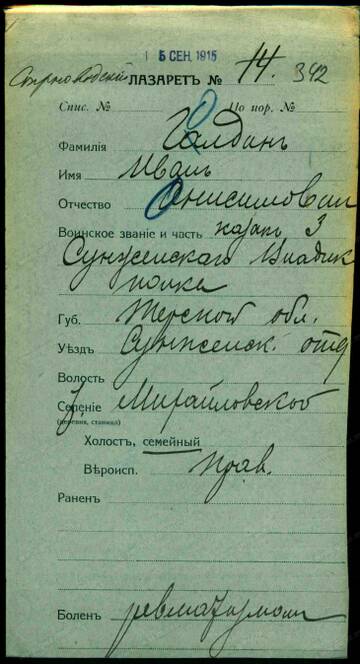 15 СЕН. 1915
ЛАЗАРЕТЪ № 14. 342
Спис. № По пор. №
Фамилія Галдинъ
Имя Иванъ
Отчество Анисимович
Воинское званіе и часть казак 3
Сунженскаго Владик
полка
Губ. Терской обл.
Уѣздъ Сунженск. отд
Волость
Селеніе Михайловской
(деревня, станица)
Холостъ, семейный
Вѣроисп. прав.
Раненъ
Боленъ ревматизмом